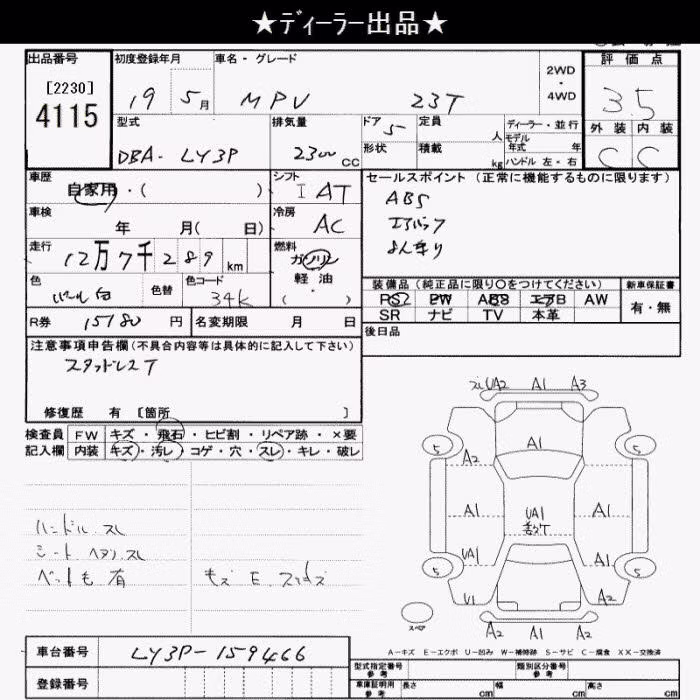 ★ディーラー出品★
出品番号
[2230]
4115
初度登録年月
19 5月
車名・グレード
MPV 23T
2WD
・
4WD
評価点
3.5
外装 内装
C C
型式
DBA-LY3P
排気量
2300 cc
ドア 5
形状
定員 人
積載 kg
ディーラー・並行
モデル
年式 年
ハンドル 左・右
車歴
自家用・( )
シフト
I AT
車検
年 月( 日)
冷房
AC
走行
12万7千289km
燃料
ガソリン
軽油
( )
色
パール白
色替
色コード
34K
R券 15180円
名変期限 月 日
セールスポイント(正常に機能するものに限ります)
ABS
エアバッグ
装備品(純正品に限り○をつけてください)
PS PW ABS エアB AW
SR ナビ TV 本革
新車保証書
有・無
後日品
注意事項申告欄(不具合内容等は具体的に記入して下さい)
スタッドレスT
修復歴 有 [箇所 ]
検査員
記入欄
FW キズ・飛石・ヒビ割・リペア跡・×要
内装 キズ・汚レ・コゲ・穴・スレ・キレ・破レ
ハンドル スレ
シート スレ
有
UA2 A1 A3
5 A1 5
A2
A1 UA1 A1
UA1 A1
5 5
U1 A2
A2 A1 A2
スペア
A-キズ E-エクボ U-凹み W-補修跡 S-サビ C-腐食 XX-交換済
車台番号 LY3P-159466
登録番号
型式指定番号
参考
類別区分番号
参考
車庫証明用
参考
長さ cm 幅 cm 高さ cm